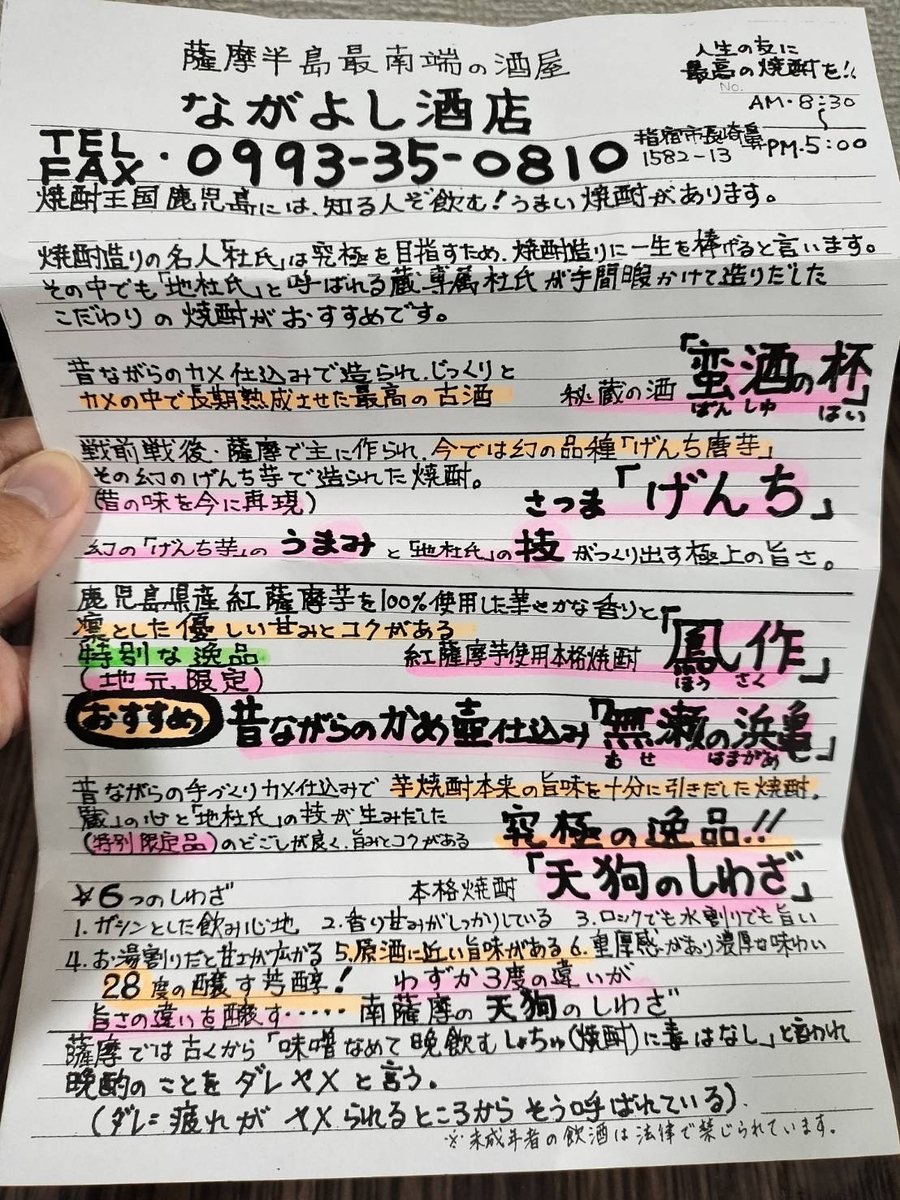 薩摩半島最南端の酒屋
人生の友に
最高の焼酎を!!
No.
ながよし酒店
AM・8:30
〜
PM・5:00
TEL
FAX・0993-35-0810
指宿市長崎鼻
1582-13
焼酎王国鹿児島には、知る人ぞ飲む!うまい焼酎があります。
焼酎造りの名人「杜氏」は究極を目指すため、焼酎造りに一生を棒げると言います。
その中でも「地杜氏」と呼ばれる蔵専属杜氏が手間暇かけて造りだした
こだわりの焼酎がおすすめです。
昔ながらのカメ仕込みで造られ、じっくりと
カメの中で長期熟成させた最高の古酒
秘蔵の酒「蛮酒の杯」
ばんしゅ はい
戦前戦後・薩摩で主に作られ、今では幻の品種「げんち唐芋」
その幻のげんち芋で造られた焼酎。
(昔の味を今に再現)
さつま「げんち」
幻の「げんち芋」のうまみと「地杜氏」の技がつくり出す極上の旨さ。
鹿児島県産紅薩摩芋を100%使用した華やかな香りと
凛とした優しい甘みとコクがある
特別な逸品
(地元、限定)
紅薩摩芋使用本格焼酎「鳳作」
ほう さく
おすすめ 昔ながらのかめ壷仕込み「無瀬の浜亀」
あ せ はまがめ
昔ながらの手づくりカメ仕込みで 芋焼酎本来の旨味を十分に引きだした焼酎。
蔵」の心と「地杜氏」の技が生みだした
(特別限定品)のどごしが良く、旨みとコクがある
究極の逸品!!
☆6つのしわざ
本格焼酎「天狗のしわざ」
1.ガシンとした飲み心地 2.香り甘みがしっかりしている 3.ロックでも水割りでも旨い
4.お湯割りだと甘さが広がる 5.原酒に近い旨味がある 6.重厚感があり濃厚な味わい
28度の醸す芳醇! わずか3度の違いが
旨さの違いを醸す・・・・・南薩摩の天狗のしわざ
薩摩では古くから「味噌なめて晩飲むしょちゅ(焼酎)に毒はなし」と言われ
晩酌のことをダレヤメと言う。
(ダレ=疲れが ヤメられるところからそう呼ばれている)
※未成年者の飲酒は法律で禁じられています。